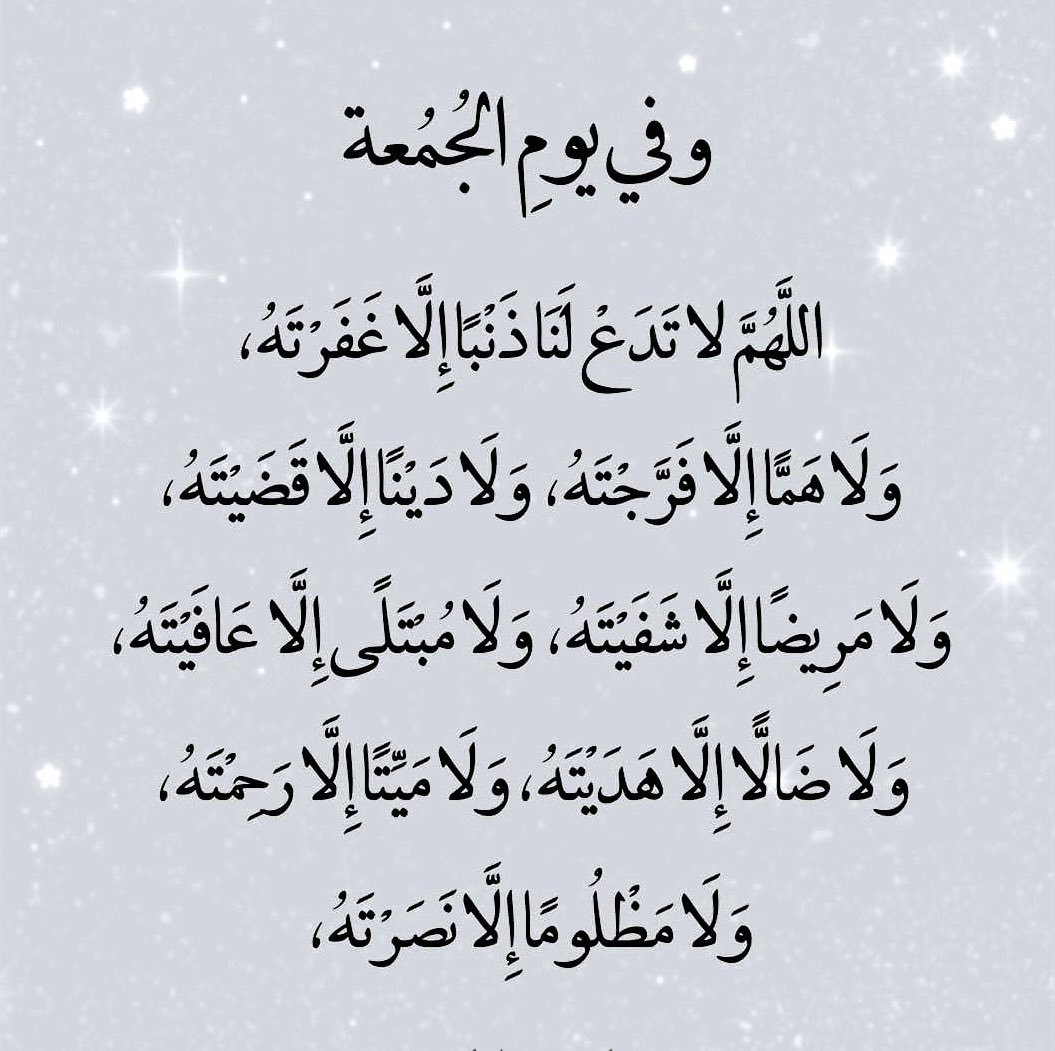 وفي يومِ الجُمُعة
اللَّهُمَّ لا تَدَعْ لَنَا ذَنْبًا إِلَّا غَفَرْتَهُ،
وَلَا هَمًّا إِلَّا فَرَّجْتَهُ، وَلَا دَيْنًا إِلَّا قَضَيْتَهُ،
وَلَا مَرِيضًا إِلَّا شَفَيْتَهُ، وَلَا مُبْتَلًى إِلَّا عَافَيْتَهُ،
وَلَا ضَالًّا إِلَّا هَدَيْتَهُ، وَلَا مَيِّتًا إِلَّا رَحِمْتَهُ،
وَلَا مَظْلُومًا إِلَّا نَصَرْتَهُ،